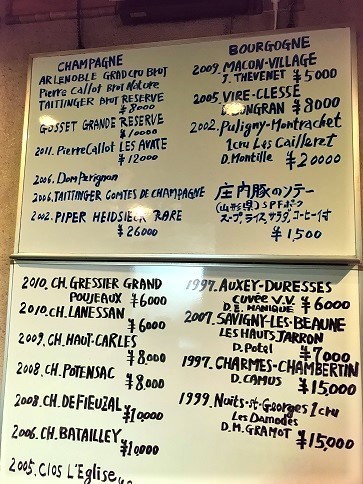 CHAMPAGNE
AR LENOBLE GRAND CRU BRUT
Pierre Callot Brut Nature
TAITTINGER BRUT RESERVE
¥8000
GOSSET GRANDE RESERVE
¥10000
2011. Pierre Callot LES AVATE
¥12000
2006. Dom Perignon
2006. TAITTINGER COMTES DE CHAMPAGNE
2002. PIPER HEIDSIECK RARE
¥26000
BOURGOGNE
2009. MACON-VILLAGE
J. THEVENET ¥5000
2005. VIRE-CLESSE
¥8000
2002. Puligny-Montrachet
1cru Les Cailleret
D. Montille ¥20000
庄内豚のソテー
(山形県) SPFポーク
スープ、ライス、サラダ、コーヒー付
¥1,500
2010. CH. GRESSIER GRAND
POUJEAUX ¥6000
2010. CH. LANESSAN
¥6000
2009. CH. HAUT-CARLES
¥8,000
2008. CH. POTENSAC
¥8,000
2008. CH. DE FIEUZAL
¥10,000
2006. CH. BATAILLEY
¥10,000
2005. Clos L'Eglise
1997. AUXEY-DURESSES
cuvée V.V. ¥6000
2007. SAVIGNY-LES-BEAUNE
LES HAUTS JARRON
D. Potel ¥7000
1997. CHARMES-CHAMBERTIN
D. CAMUS ¥15,000
1999. Nuits-st-Georges 1cru
Les Damodes
D. M. GRAMOT ¥15,000